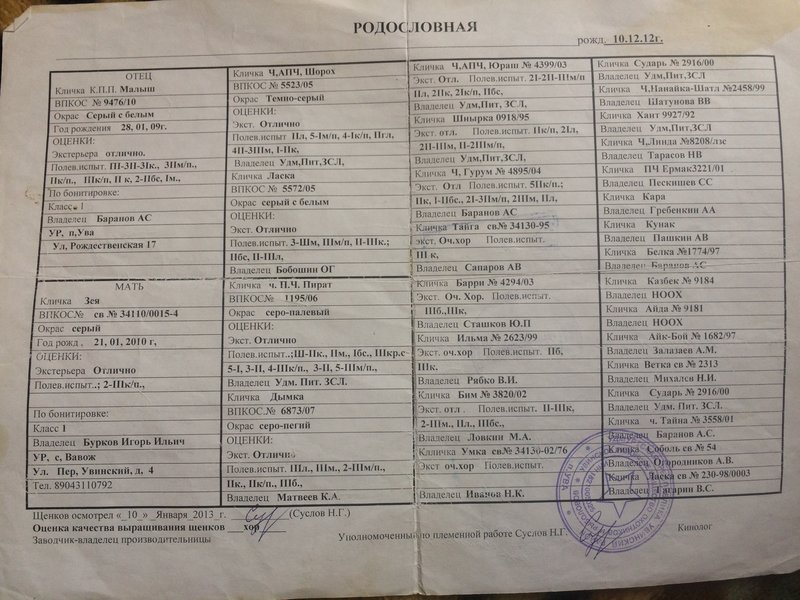 РОДОСЛОВНАЯ
рожд. 10.12.12г.
ОТЕЦ
Кличка К.П.П. Малыш
ВПКОС № 9476/10
Окрас Серый с белым
Год рождения 28, 01, 09г.
ОЦЕНКИ:
Экстерьера отлично.
Полев.испыт. ПI-3II-3Iк., 3IIм/п.,
Пк/п., IIIк/п, II к, 2-IIбс, Iм.,
По бонитировке:
Класс. I
Владелец Баранов АС
УР, п,Ува
Ул, Рождественская 17
МАТЬ
Кличка Зея
ВПКОС№ св № 34110/0015-4
Окрас серый
Год рожд . 21, 01, 2010 г,
ОЦЕНКИ:
Экстерьера Отлично
Полев.испыт..; 2-IIIк/п.,
По бонитировке:
Класс I
Владелец Бурков Игорь Ильич
УР, с, Вавож
Ул. Пер, Увинский, д, 4
Тел. 89043110792
Кличка Ч,АПЧ, Шорох
ВПКОС № 5523/05
Окрас Темно-серый
ОЦЕНКИ:
Экст. Отлично
Полев.испыт IIл, 5-Iм/п, 4-Iк/п, IIгл,
4II-3IIIм, I-IIк,
Владелец Удм,Пит,ЗСЛ,
Кличка Ласка
ВПКОС № 5572/05
Окрас серый с белым
ОЦЕНКИ:
Экст. Отлично
Полев.испыт. 3-Шм, IIIм/п, II-IIIк.;
IIбс, II-IIIл,
Владелец Бобошин ОГ
Кличка ч. П.Ч. Пират
ВПКОС№ 1195/06
Окрас серо-палевый
ОЦЕНКИ:
Экст. Отлично
Полев.испыт..;Ш-Пк., IIм., Iбс., IIIкр.с
5-I, 3-II, 4-IIIк/п., 3-II, 5-IIIм/п.,
Владелец Удм. Пит. ЗСЛ.
Кличка Дымка
ВПКОС.№ 6873/07
Окрас серо-пегий
ОЦЕНКИ:
Экст. Отлично
Полев.испыт. IIIл., IIIм., 2-IIIм/п.,
Пк., Пк/п., IIIбс.,
Владелец Матвеев К.А.
Кличка Ч,АПЧ, Юраш № 4399/03
Экст. Отл. Полев.испыт. 2I-2II-IIIм/п
IIл, 2IIк, 2Iк/п, IIбс,
Владелец Удм,Пит, ЗСЛ,
Кличка Шнырка 0918/95
Экст. отл. Полев.испыт. IIк/п, 2Iл,
2II-IIIм, II-2IIIм/п,
Владелец Удм,Пит,ЗСЛ,
Кличка Ч, Гурум № 4895/04
Экст. Отл Полев.испыт. 5IIк/п.;
IIк, I-IIбс., 2I-3IIм/п, 2IIIм, IIл,
Владелец Баранов АС
Кличка Тайга св.№ 34130-95
экст. Оч.хор Полев.испыт.
III к,
Владелец Сапаров АВ
Кличка Барри № 4294/03
Экст. Оч. Хор. Полев.испыт.
IIIб.,IIIк,
Владелец Сташков Ю.П
Кличка Ильма № 2623/99
Экст. оч.хор Полев.испыт. IIб,
IIIк.
Владелец Рябко В.И.
Кличка Бим № 3820/02
Экст. отл . Полев.испыт. II-IIIк,
2-IIIм., IIл., IIIбс.,
Владелец Ловкин М.А.
Кличка Умка св№ 34130-02/76
Экст оч.хор Полев.испыт.
Владелец Иванов Н.К.
Кличка Сударь № 2916/00
Владелец Удм,Пит,ЗСЛ
Кличка Ч,Нанайка-Шатл №2458/99
Владелец Шатунова ВВ
Кличка Хант 9927/92
Владелец Удм,Пит,ЗСЛ
Кличка Ч,Линда №8208/лзс
Владелец Тарасов НВ
Кличка ПЧ Ермак3221/01
Владелец Пескишев СС
Кличка Кара
Владелец Гребенкин АА
Кличка Кунак
Владелец Пашкин АВ
Кличка Белка №1774/97
Владелец Баранов АС
Кличка Казбек № 9184
Владелец НООХ
Кличка Айда № 9181
Владелец НООХ
Кличка Айк-Бой № 1682/97
Владелец Залазаев А.М.
Кличка Ветка св № 2313
Владелец Михалев Н.И.
Кличка Сударь № 2916/00
Владелец Удм. Пит. ЗСЛ.
Кличка ч. Тайна № 3558/01
Владелец Баранов А.С.
Кличка Соболь св № 54
Владелец Огородников А.В.
Кличка Ласка св № 230-98/0003
Владелец Гагарин В.С.
Щенков осмотрел «_10_» _Января_2013_г. (Суслов Н.Г.)
Оценка качества выращивания щенков хор
Заводчик-владелец производительницы
Уполномоченный по племенной работе Суслов Н.Г. Кинолог